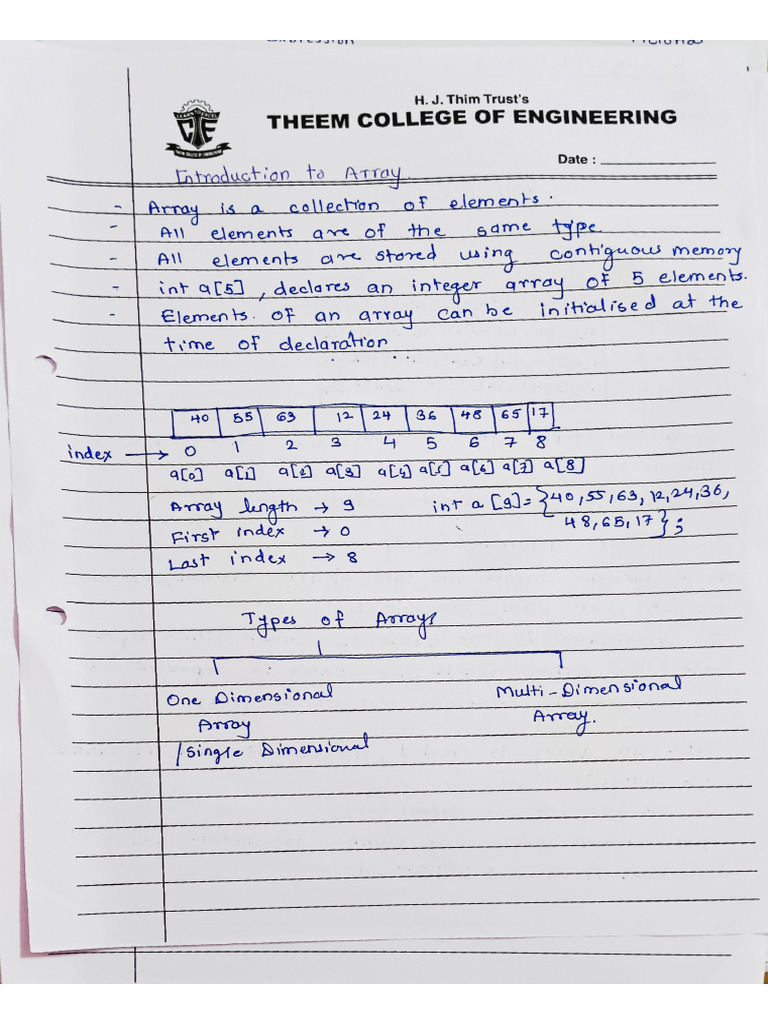 H. J. Thim Trust's
THEEM COLLEGE OF ENGINEERING
Date :
Introduction to Array.
- Array is a collection of elements.
- All elements are of the same type.
- All elements are stored using contiguous memory
- int a[5], declares an integer array of 5 elements.
- Elements. of an array can be initialised at the
time of declaration
40 55 63 12 24 36 48 65 17
index → 0 1 2 3 4 5 6 7 8
a[0] a[1] a[2] a[3] a[4] a[5] a[6] a[7] a[8]
Array length → 9 int a [9]= {40,55,63,12,24,36,
First index → 0 48,65,17};
Last index → 8
Types of Arrays
One Dimensional Multi-Dimensional
Array Array.
/Single Dimensional